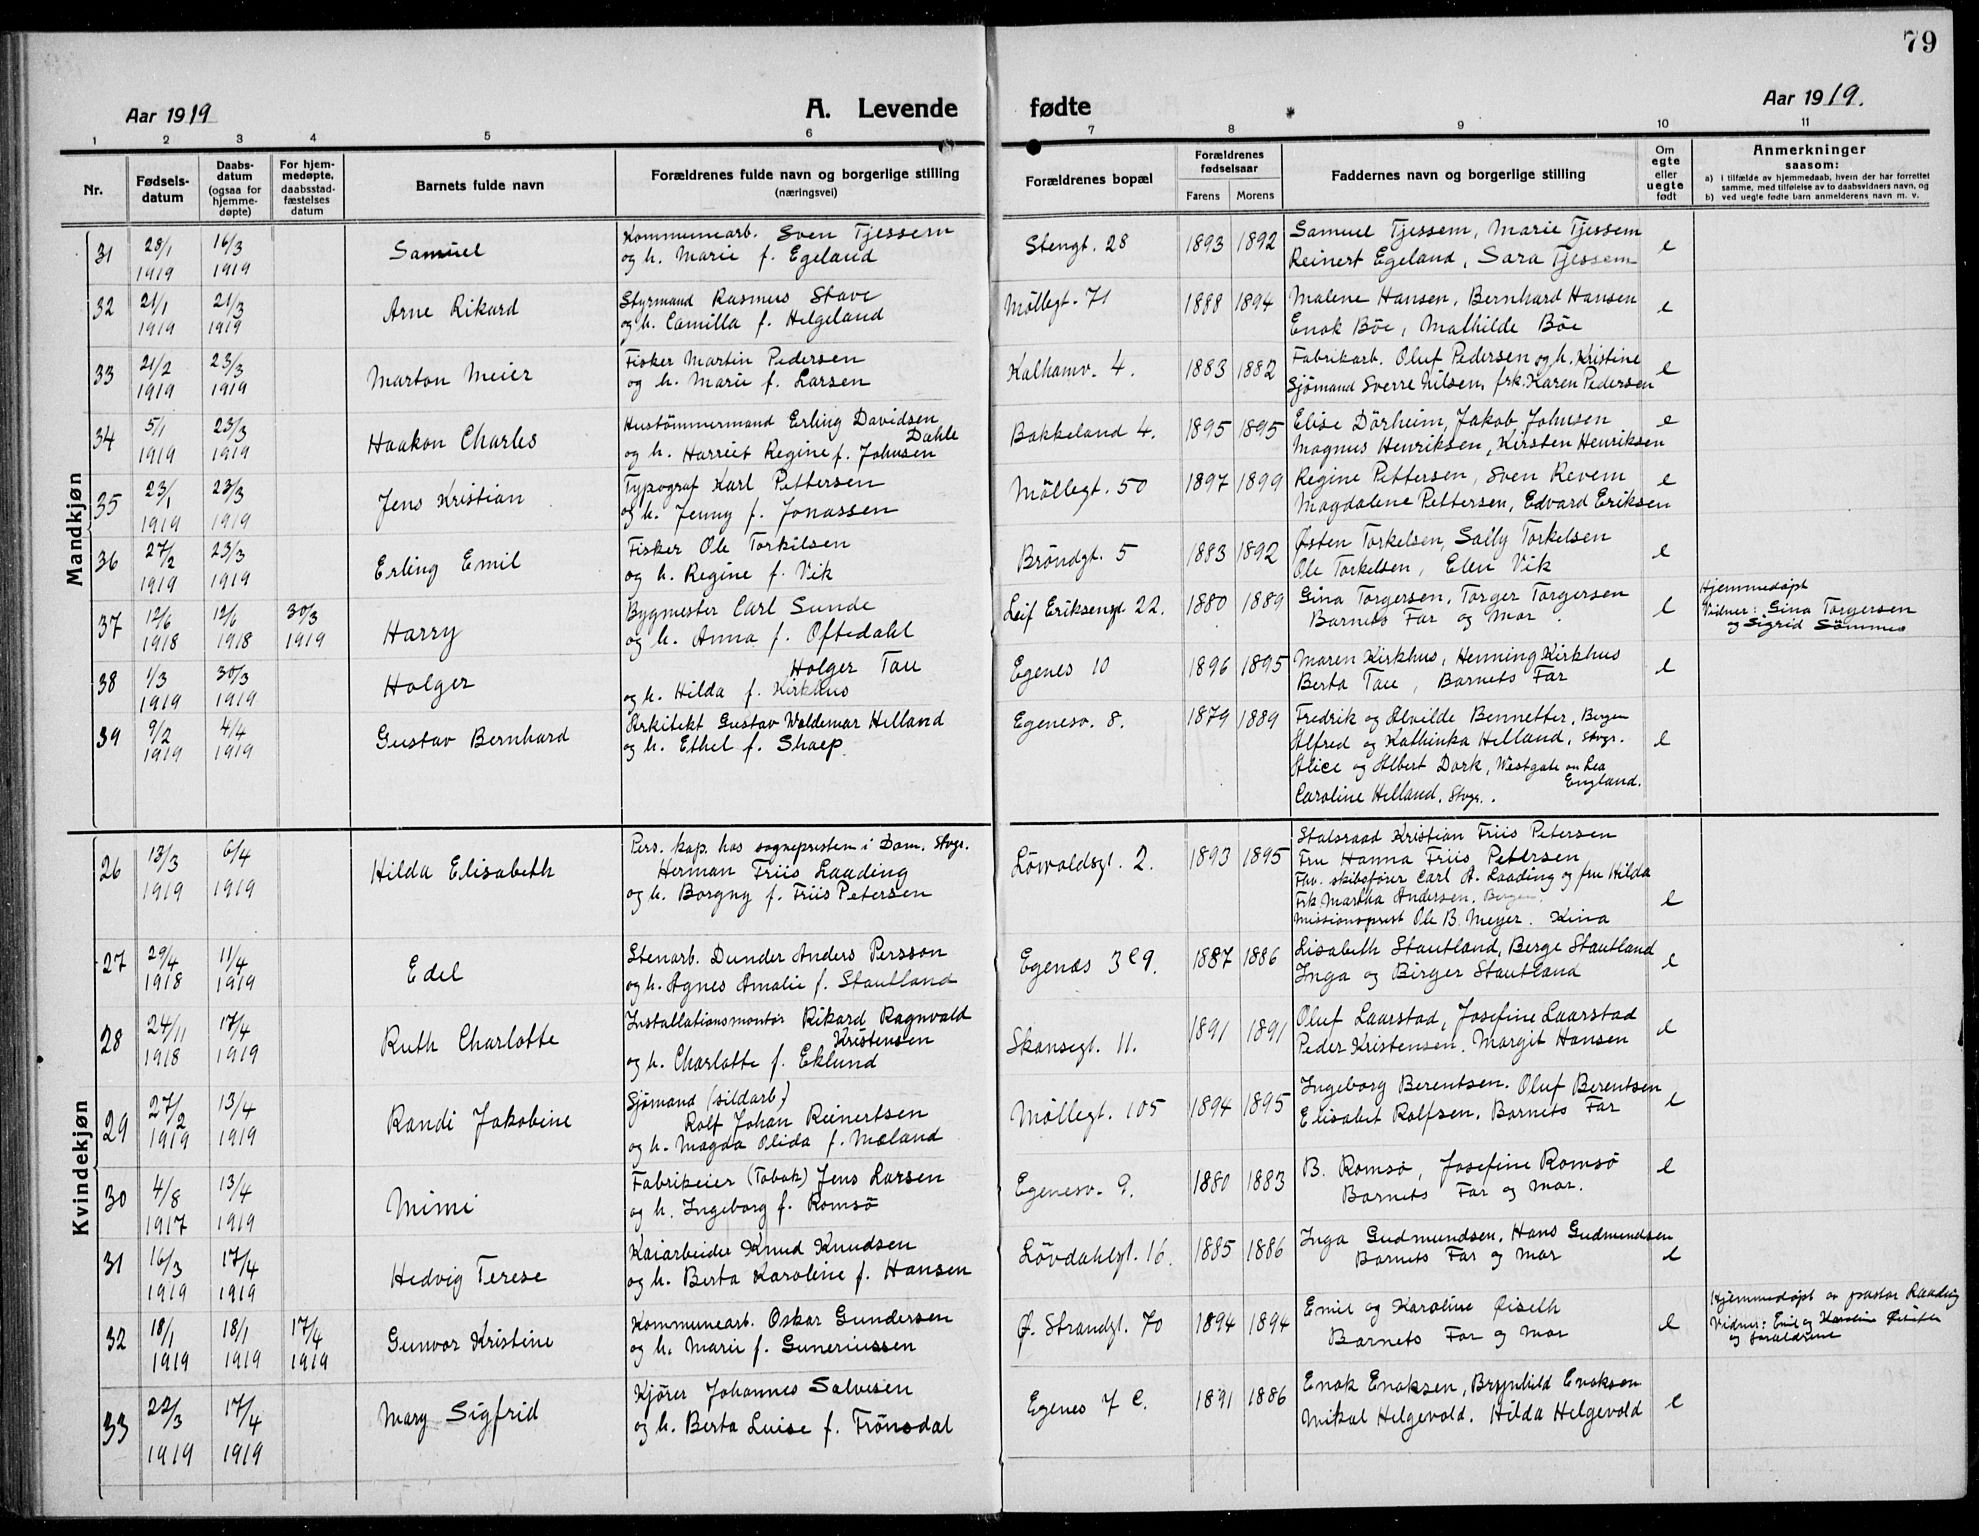 79
Aar 1919 A. Levende fødte Aar 1919.
1 2 3 4 5 6 7 8 9 10 11
Nr.
Fødsels-
datum
Daabs-
datum
(ogsaa for
hjemme-
døpte)
For hjem-
medøpte,
daabsstad-
fæstelses
datum
Barnets fulde navn
Forældrenes fulde navn og borgerlige stilling
(næringsvei)
Forældrenes bopæl
Forældrenes
fødselsaar
Farens Morens
Faddernes navn og borgerlige stilling
Om
egte
eller
uegte
født
Anmerkninger
saasom:
a) i tilfælde av hjemmedaab, hvem der har forrettet
samme, med tilføielse av to daabsvidners navn, og
b) ved uegte fødte barn anmelderens navn m. v.
Mandkjøn
31 28/1 1919 16/3 1919 Samuel
Kommunearb. Sven Tjessem
og h. Marie f. Egeland
Stengt. 28 1893 1892
Samuel Tjessem, Marie Tjessem
Reinert Egeland, Sara Tjessem
e
32 21/1 1919 21/3 1919 Arne Rikard
Styrmand Rasmus Stave
og h. Camilla f. Helgeland
Möllegt. 71 1888 1894
Malene Hansen, Bernhard Hansen
Enok Böe, Mathilde Böe
e
33 21/2 1919 23/3 1919 Marton Meier
Fisker Martin Pedersen
og h. Marie f. Larsen
Kalhamv. 4. 1883 1882
Fabrikarb. Oluf Pedersen og h. Kristine
Sjömand Sverre Nilsen, frk. Karen Pedersen
e
34 5/1 1919 23/3 1919 Haakon Charles
Hustömmermand Erling Davidsen
Dahle
og h. Harriet Regine f. Johnsen
Bakkeland 4. 1895 1895
Elise Dörheim, Jakob Johnsen
Magnus Henriksen, Kirsten Henriksen
e
35 23/1 1919 23/3 1919 Jens Kristian
Typograf Karl Pettersen
og h. Jenny f. Jonassen
Möllegt. 50 1897 1899
Regine Pettersen, Sven Revem
Magdalene Pettersen, Edvard Eriksen
e
36 27/2 1919 23/3 1919 Erling Emil
Fisker Ole Torkilsen
og h. Regine f. Vik
Bröndgt. 5 1883 1892
Østen Torkelsen, Sally Torkelsen
Ole Torkelsen, Elen Vik
e
37 12/6 1918 12/6 1918 30/3 1919 Harry
Bygmester Carl Sunde
og h. Anna f. Oftedahl
Leif Eriksensgt. 22. 1880 1889
Gina Torgersen, Torger Torgersen
Barnets Far og Mor.
e
Hjemmedöpt
Vidner: Gina Torgersen
og Sigrid Sömme
38 1/3 1919 30/3 1919 Holger
Holger Tau
og h. Hilda f. Kirkhus
Egenes 10 1896 1895
Maren Kirkhus, Henning Kirkhus
Berta Tau, Barnets Far
e
39 9/2 1919 4/4 1919 Gustav Bernhard
Arkitekt Gustav Waldemar Helland
og h. Ethel f. Shaep.
Egenesv. 8. 1879 1889
Fredrik og Alvilde Bennetter, Bergen
Alfred og Kathinka Helland, Stvgr.
Alice og Albert Dork, Westgate on Sea
England.
Caroline Helland. Stvgr.
e
Kvindekjøn
26 13/3 1919 6/4 1919 Hilda Elisabeth
Pers. kap. hos sognepresten i Dom. Stvgr.
Herman Friis Laading
og h. Borgny f. Friis Petersen
Lövoldsgt. 2. 1893 1895
Statsraad Kristian Friis Petersen
Fru Hanna Friis Petersen
Fhv. skibsfører Carl A. Laading og fru Hilda
Frk Martha Andersen. Bergen.
Missionsprest Ole B. Meyer. Kina
e
27 29/4 1918 11/4 1919 Edel
Stenarb. Dunder Anders Persson
og h. Agnes Amalie f. Stautland
Egenæs 3 e 9. 1887 1886
Lisabeth Stautland, Berge Stautland
Inga og Birger Stautland
e
28 24/11 1918 17/4 1919 Ruth Charlotte
Installationsmontör Rikard Ragnvald
Kristensen
og h. Charlotte f. Eklund
Skansegt. 11. 1891 1891
Oluf Laarstad, Josefine Laarstad
Peder Kristensen. Margit Hansen
e
29 27/2 1919 13/4 1919 Randi Jakobine
Sjömand (sildarb.)
Rolf Johan Reinertsen
og h. Magda Olida f. Mæland
Möllegt. 105 1894 1895
Ingeborg Berentsen. Oluf Berentsen
Elisabet Rolfsen. Barnets Far
e
30 4/8 1917 13/4 1919 Mimi
Fabrikeier (Tobak) Jens Larsen
og h. Ingeborg f. Romsö
Egenesv. 9. 1880 1883
B. Romsö, Josefine Romsö
Barnets Far og Mor.
e
31 16/3 1919 17/4 1919 Hedvig Terese
Kaiarbeider Knud Knudsen
og h. Berta Karoline f. Hansen
Lövdahlsgt. 16. 1885 1886
Inga Gudmundsen, Hans Gudmundsen
Barnets Far og Mor
e
32 18/1 1919 18/1 1919 17/4 1919 Gunvor Kristine
Kommunearb. Oskar Gundersen
og h. Marie f. Guneriussen
Ø. Strandgt. 70 1894 1894
Emil og Karoline Øiseth
Barnets Far og Mor
e
Hjemmedöpt av pastor Laading
Vidner: Emil og Karoline Øiseth
og forældrene
33 22/3 1919 17/4 1919 Mary Sigfrid
Kjörer Johannes Salvesen
og h. Berta Luise f. Trönsdal
Egenes 7 C. 1891 1886
Enok Enoksen, Brynhild Enoksen
Mikal Helgevold. Hilda Helgevold
e